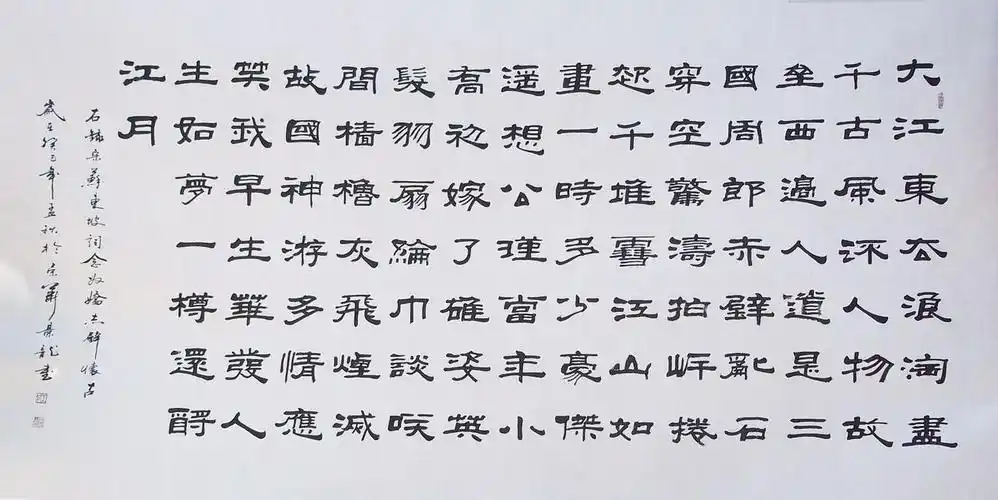 大江東去浪淘盡
千古風流人物故
壘西邊人道是三
國周郎赤壁亂石
穿空驚濤拍岸捲
起千堆雪江山如
畫一時多少豪傑
遥想公瑾當年小
喬初嫁了雄姿英
髮羽扇綸巾談笑
間檣櫓灰飛煙滅
故國神游多情應
笑我早生華發人
生如夢一樽還酹
江月
右錄宋蘇東坡詞念奴嬌赤壁懷古
歲在癸巳年孟秋於京景龍書